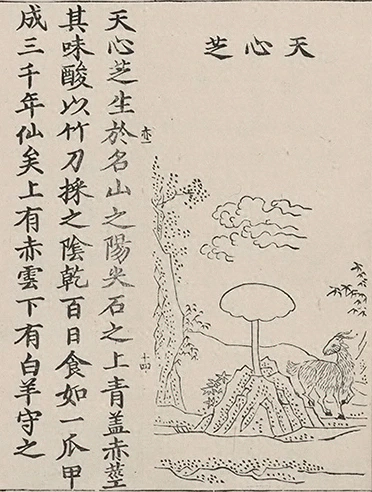 天心芝
天心芝生於名山之陽尖石之上青盖赤莖
其味酸以竹刀採之陰乾百日食如一瓜甲
成三千年仙矣上有赤雲下有白羊守之
十四